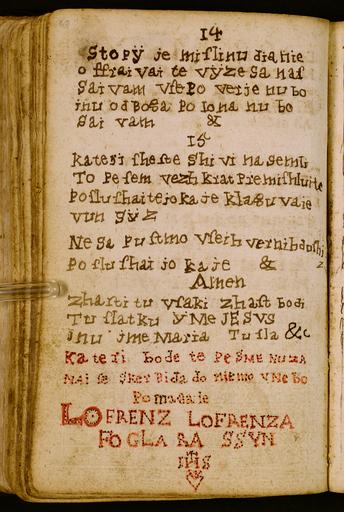 14
Stopÿ je miſlinu dianie
o ffrai vai te vÿze Sa naſ
Sai vam vſe Po verje nu bo
inu od Boga Po lona nu bo
Sai vam &
15
Kateri sheſte Shi vi na Semli
To Peſem vezh krat Premiſhluite
Poſluſhaite jo ka je Klagu vaie
vun Sÿz
Ne Sa Pu ſtmo vſeih vernih duſhi
Po ſlu ſhai jo Ka je &
Amen
Zhaſti tu vſaki zhaſt bodi
Tu ſlatku ÿMe JESVS
jnu jme Maria Tu ſla &c
Kateri bode te PeSMe
Pomagaie
LOFRENZ LOFRENZA
FOGLA RA SSVN
IHS